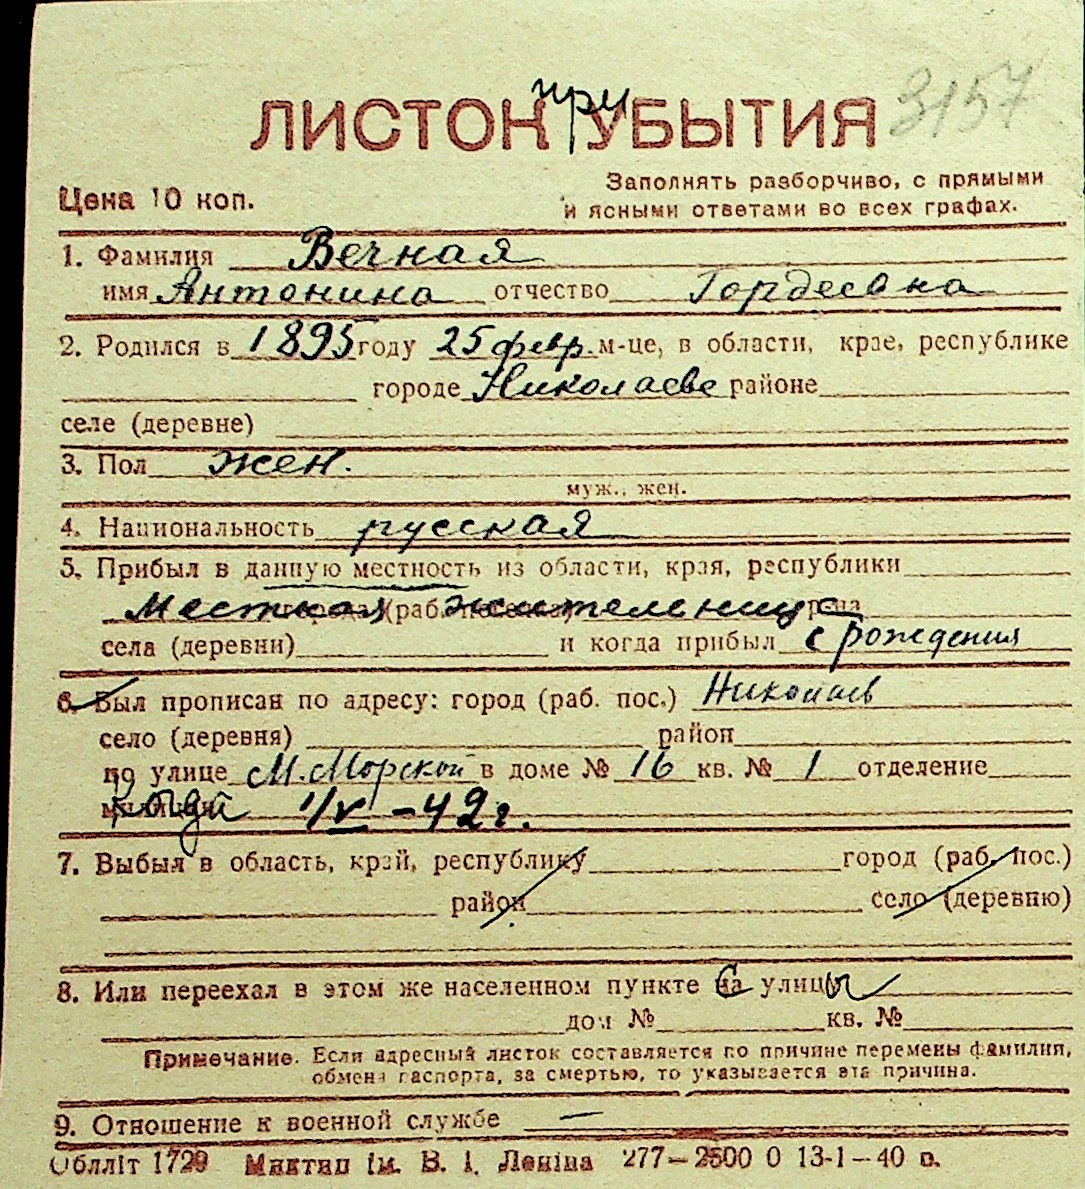 3157
ЛИСТОК при УБЫТИЯ
Цена 10 коп.
Заполнять разборчиво, с прямыми
и ясными ответами во всех графах.
1. Фамилия Вечная
имя Антонина отчество Гордеевна
2. Родился в 1895 году 25 февр. м-це, в области, крае, республике
городе Николаеве районе
селе (деревне)
3. Пол жен.
муж., жен.
4. Национальность русская
5. Прибыл в данную местность из области, края, республики
Местная (раб. жительница
села (деревни) и когда прибыл с рождения
6. Был прописан по адресу: город (раб. пос.) Николаев
село (деревня) район
по улице М. Морской в доме № 16 кв. № 1 отделение
милиции 1/V – 42 г.
7. Выбыл в область, край, республику город (раб. пос.)
район село (деревню)
8. Или переехал в этом же населенном пункте с улицы
дом № кв. №
Примечание. Если адресный листок составляется по причине перемены фамилии,
обмена паспорта, за смертью, то указывается эта причина.
9. Отношение к военной службе —
Обллiт 1729 Миктип iм. В. I. Ленiна 277–2500 0 13-1–40 в.